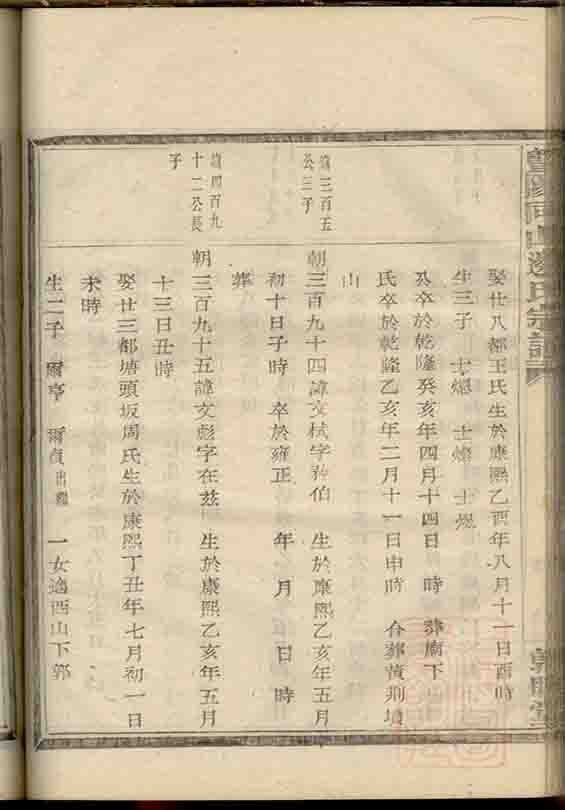 山邊氏宗譜
娶廿八都王氏生於康熙乙酉年八月十一日酉時
生三子 士 士燦 士焜
公卒於乾隆癸亥年四月十四日 時 葬廟下
氏卒於乾隆乙亥年二月十一日申時 合葬黃荆墳
山
三百五
公三子
朝三百九十四諱文栻字 伯 生於康熙乙亥年五月
初十日子時 卒於雍正 年 月 日 時
葬
四百九
十二公長
子
朝三百九十五諱文彪字在茲 生於康熙乙亥年五月
十三日丑時
娶廿三都塘頭坂周氏生於康熙丁丑年七月初一日
未時
生二子 爾亨 爾貞出繼 一女適西山下郭